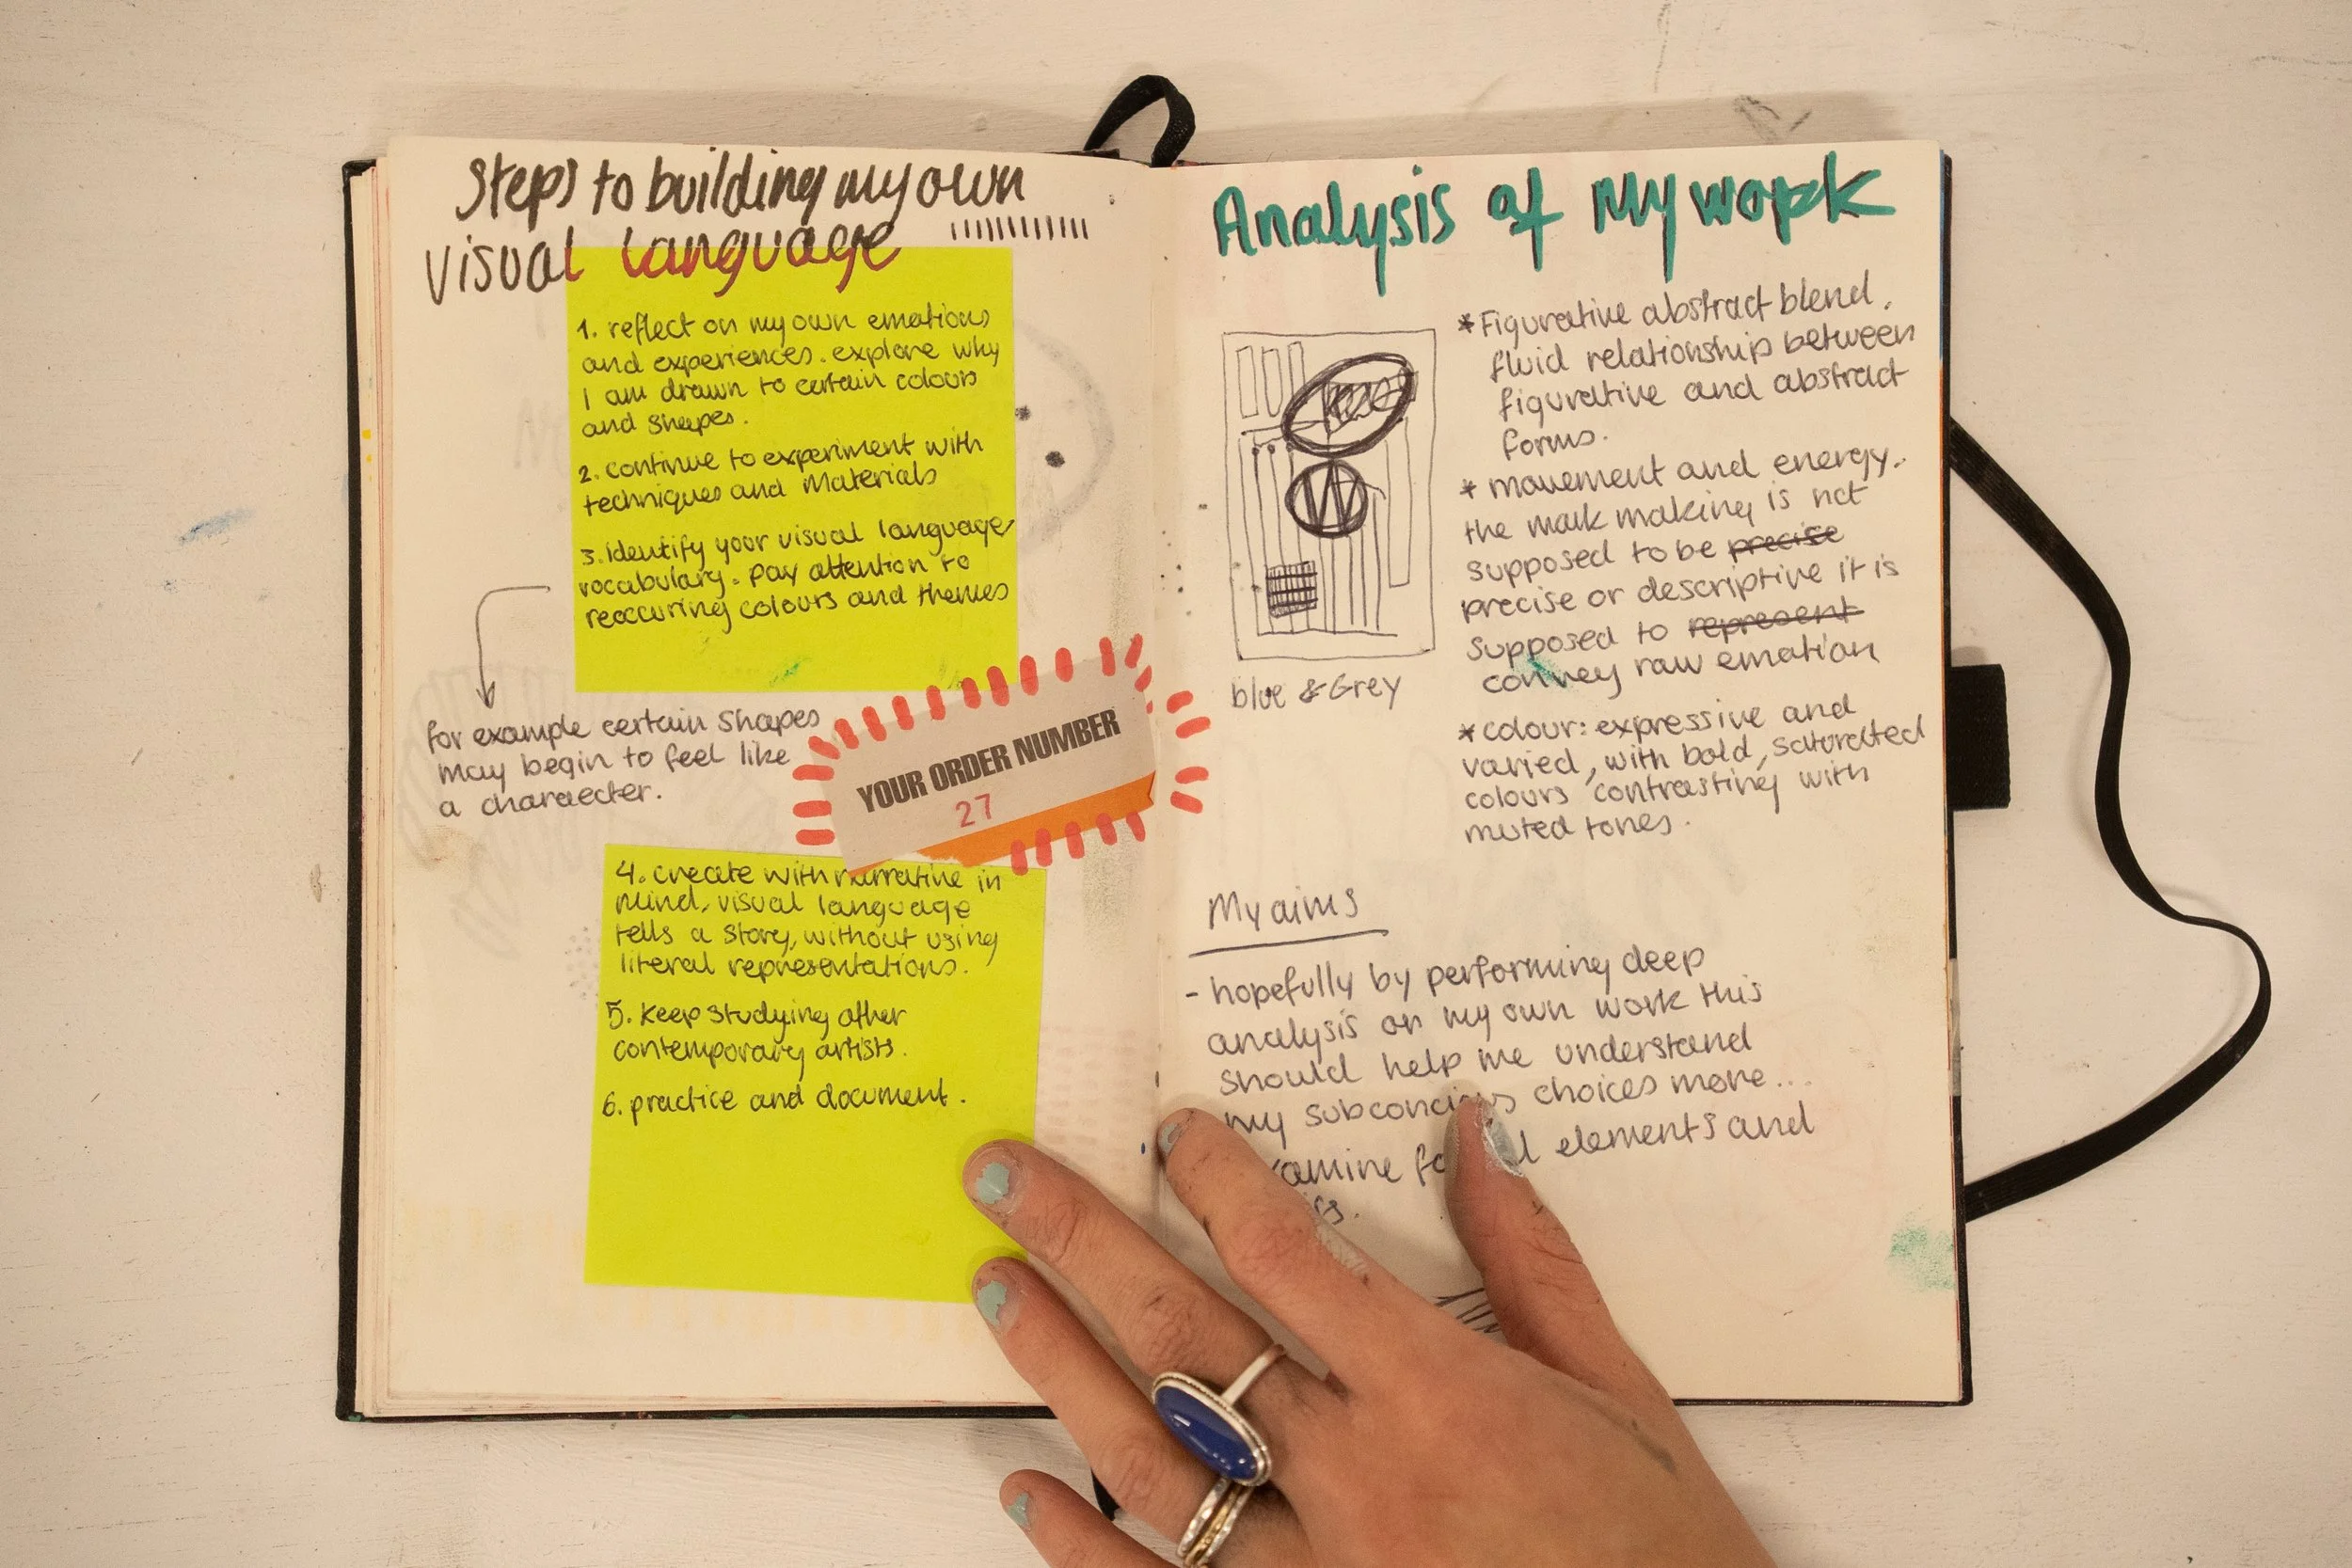 Steps to building my own
visual language
1. reflect on my own emotions
and experiences. explore why
I am drawn to certain colours
and shapes.
2. continue to experiment with
techniques and Materials
3. identify your visual language
vocabulary. pay attention to
reaccuring colours and themes
for example certain shapes
may begin to feel like
a charaecter.
YOUR ORDER NUMBER
27
4. create with narrative in
mind, visual language
tells a story, without using
literal representations.
5. Keep studying other
contemporary artists.
6. practice and document.
Analysis of My work
*Figurative abstract blend.
fluid relationship between
figurative and abstract
forms.
* movement and energy.
the mark making is not
supposed to be precise
precise or descriptive it is
supposed to represent
convey raw emotion
*colour: expressive and
varied, with bold, saturated
colours contrasting with
muted tones.
blue & Grey
My aims
- hopefully by performing deep
analysis on my own work this
should help me understand
my subconcious choices more...
elements and